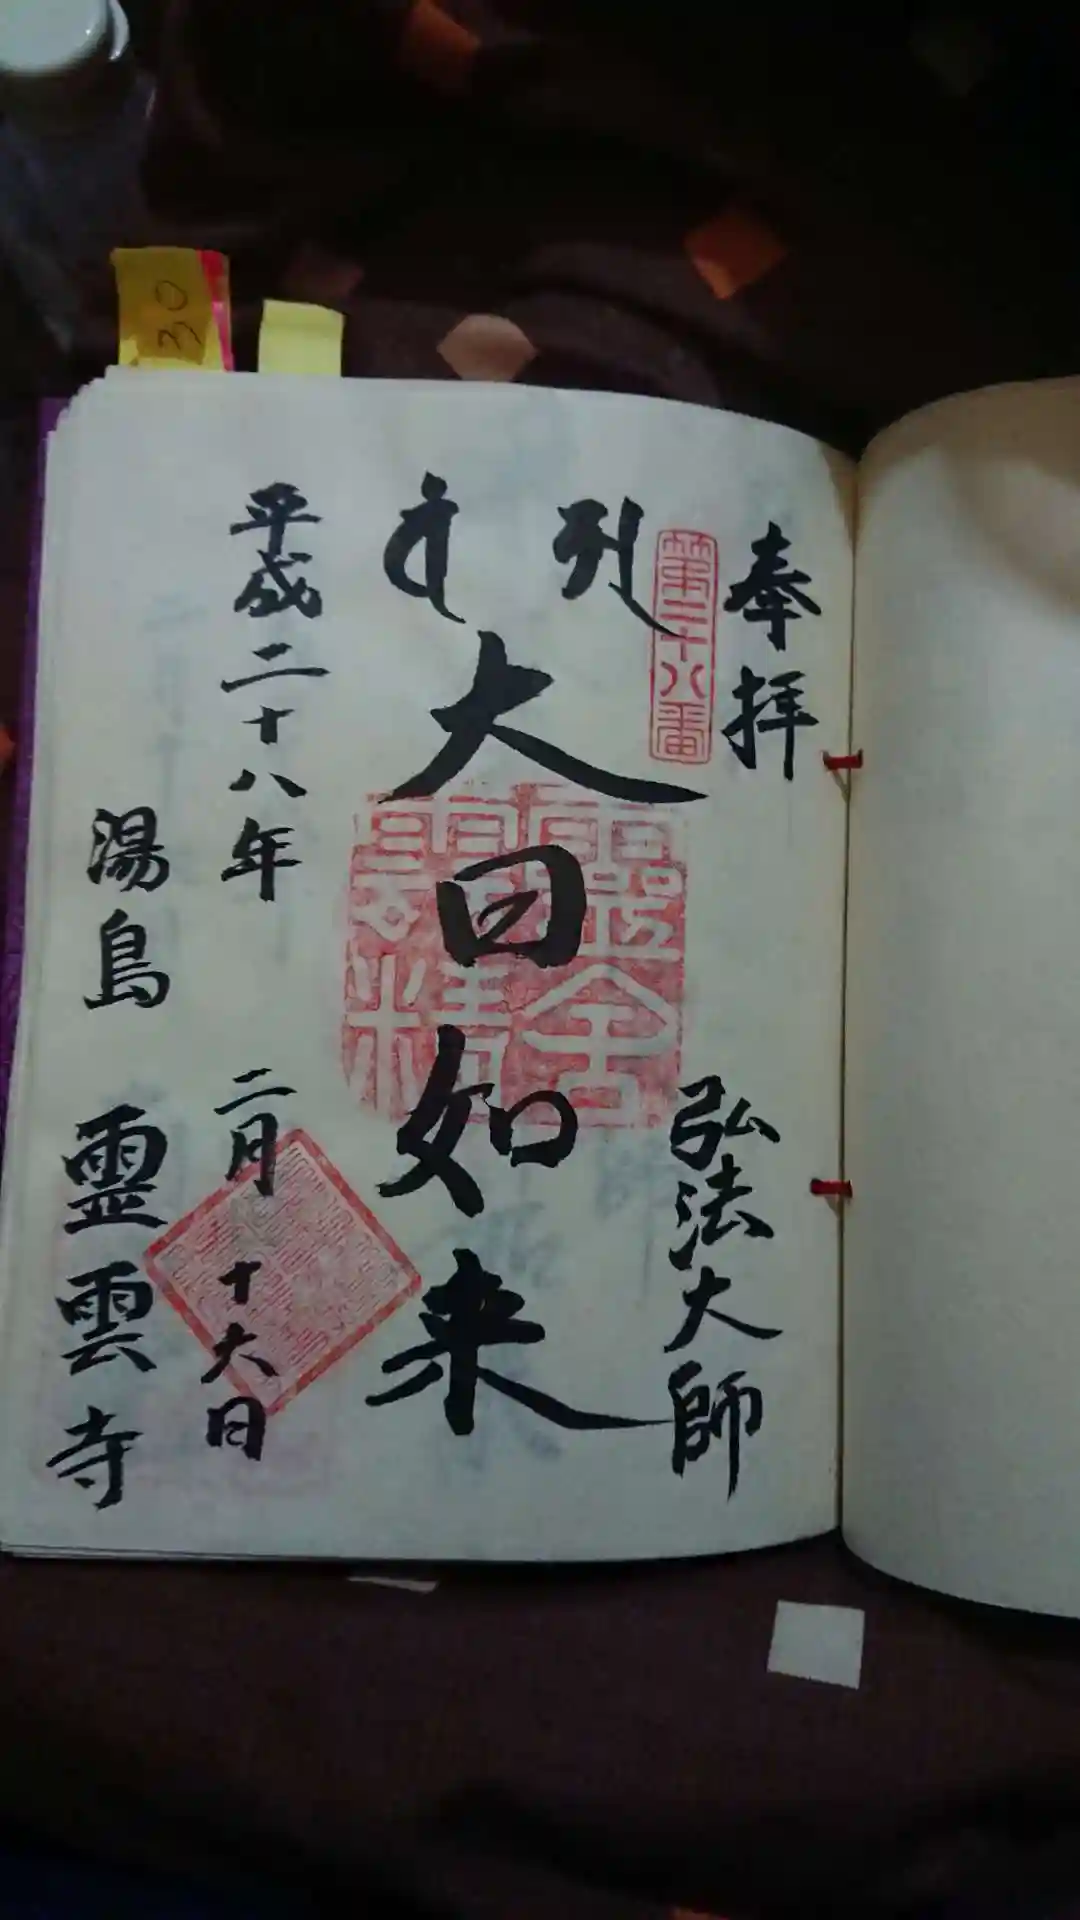 奉拝
第二十八番
弘法大師
大日如来
平成二十八年 二月 十六日
湯島 霊雲寺
30